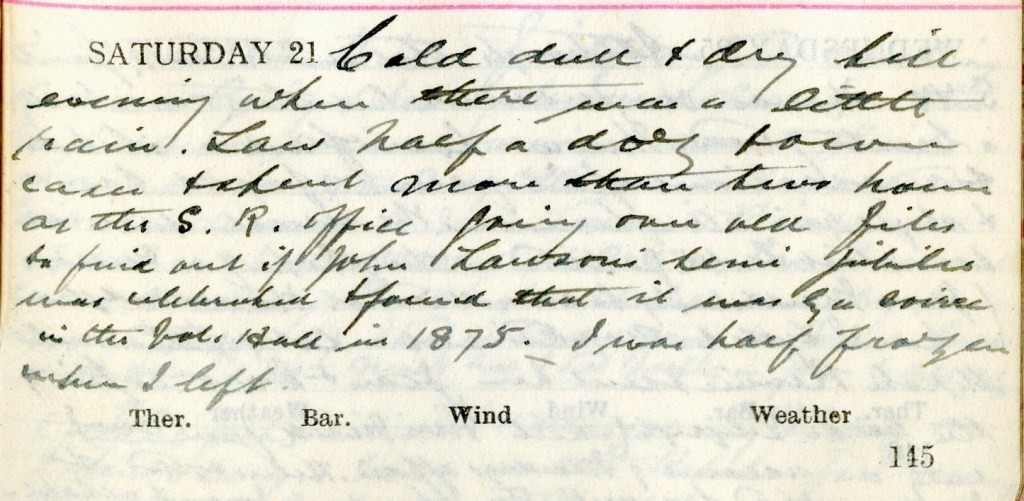 SATURDAY 21 Cold dull & dry till
evening when there was a little
rain. Saw half a doz town
cases & spent more than two hours
at the S. R. office going over old files
to find out if John Lawson's semi jubilee
was celebrated & found that it was by a soiree
in the Vol. Hall in 1875. I was half frozen
when I left
Ther. Bar. Wind Weather
145